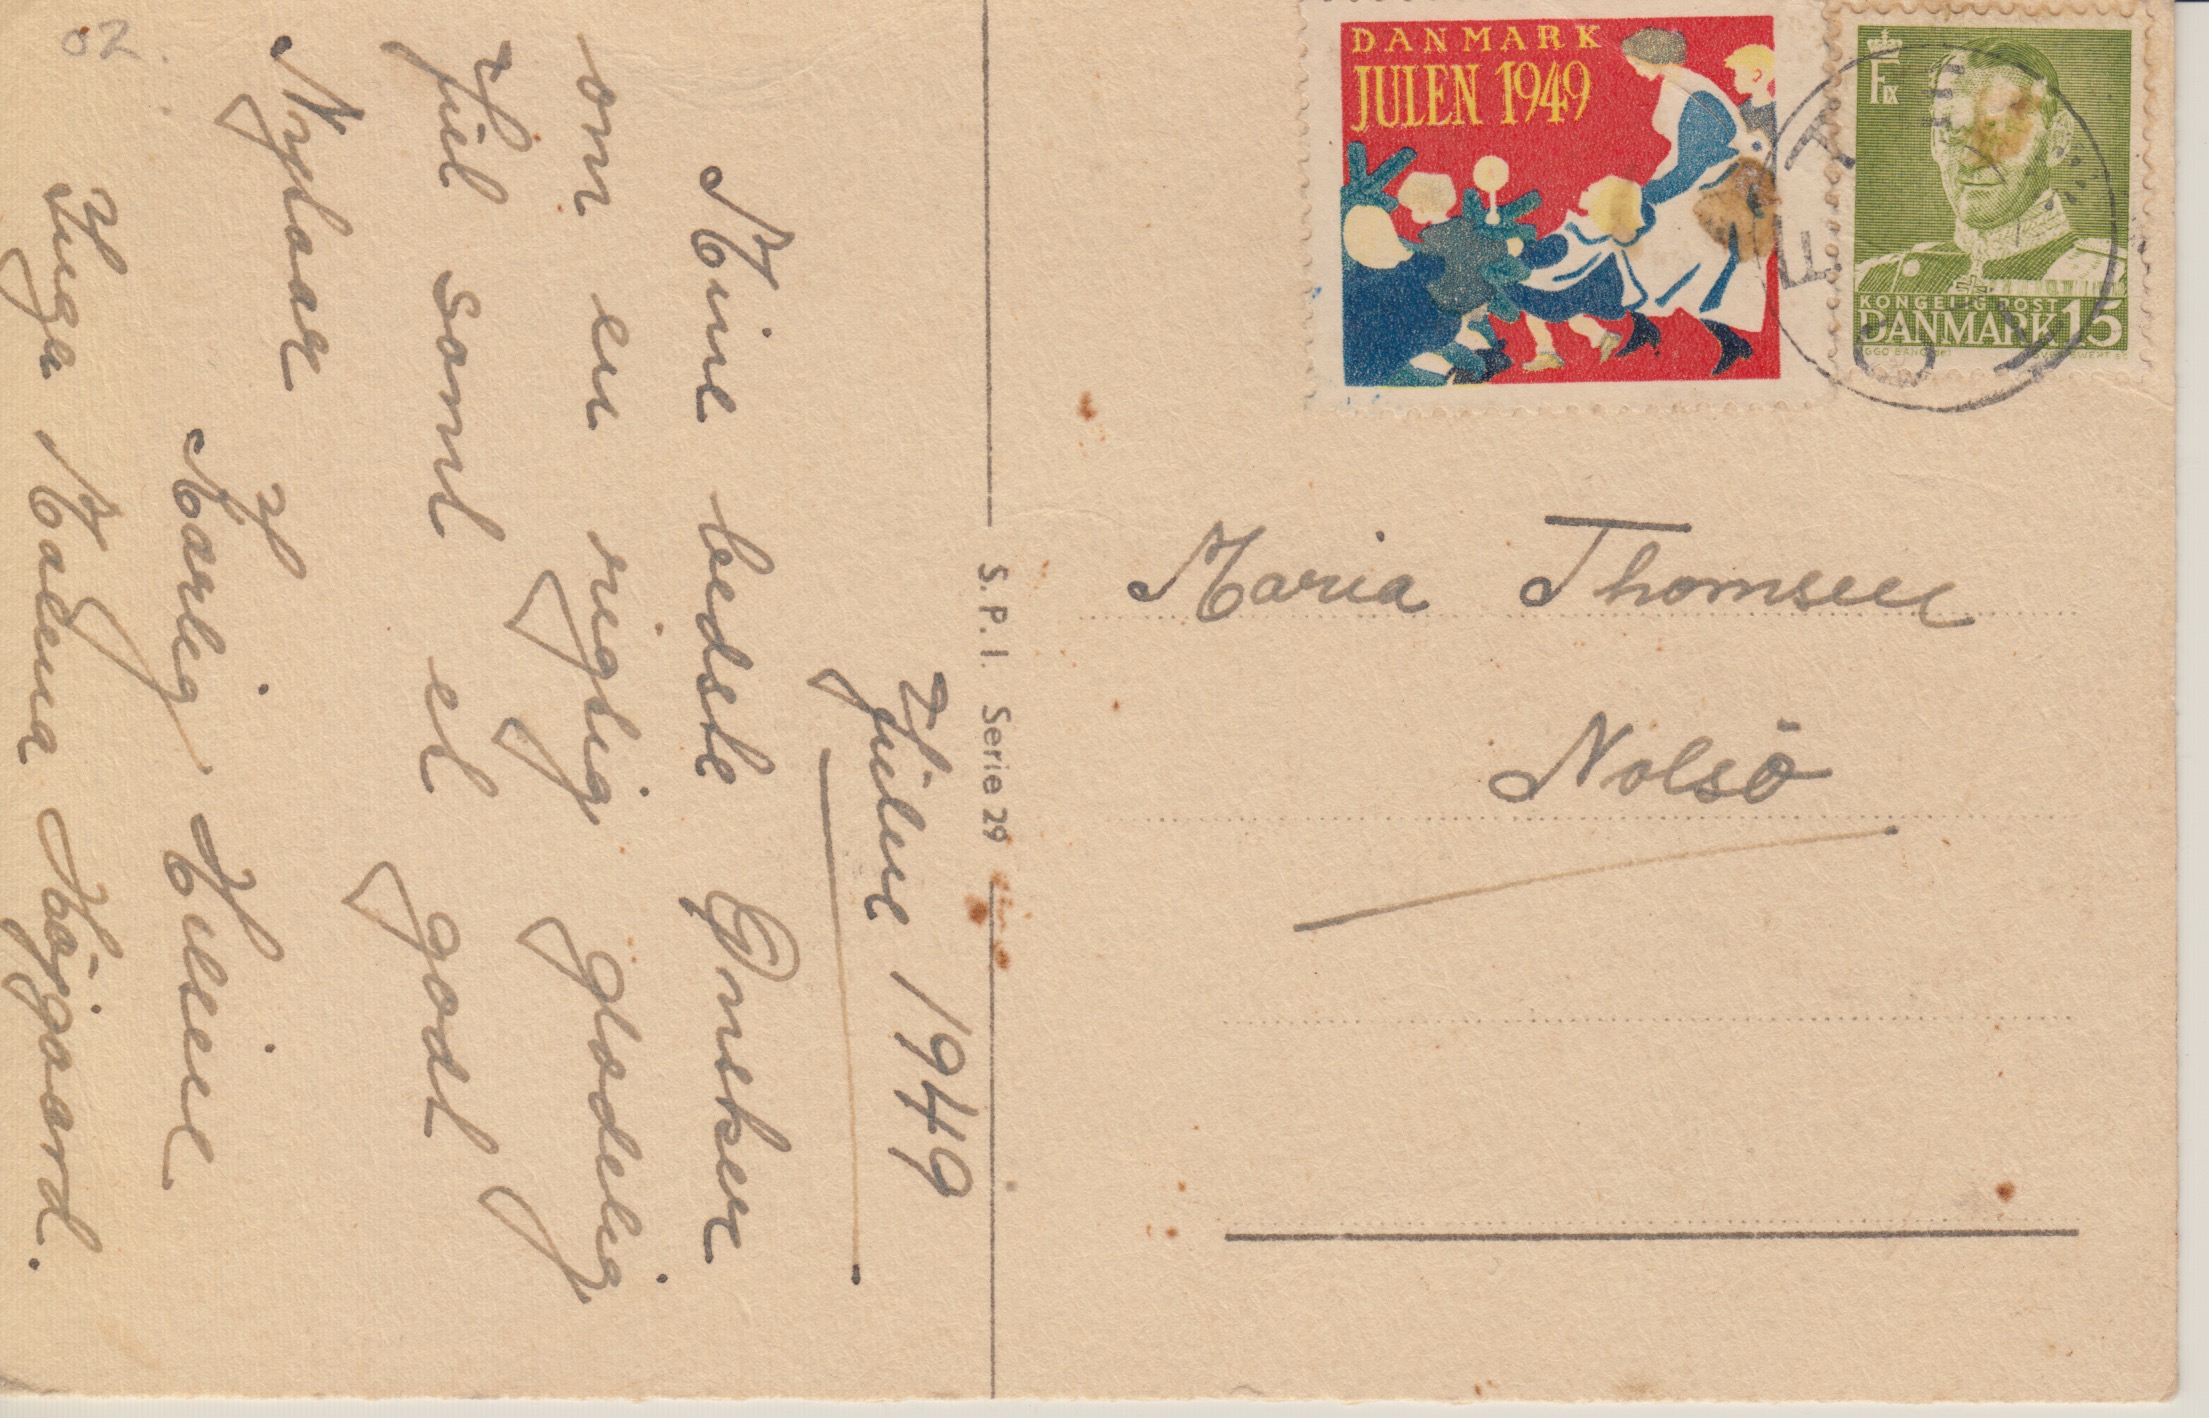 02
Julen 1949
Mine bedste Ønsker
om en rigtig glædelig
Jul samt et godt
Nytaar
Kærlig Hilsen
Inga Malena Højgaard.
S. P. I. Serie 29
DANMARK
JULEN 1949
F IX
KONGELIG POST
DANMARK 15
Maria Thomsen
Nolsö